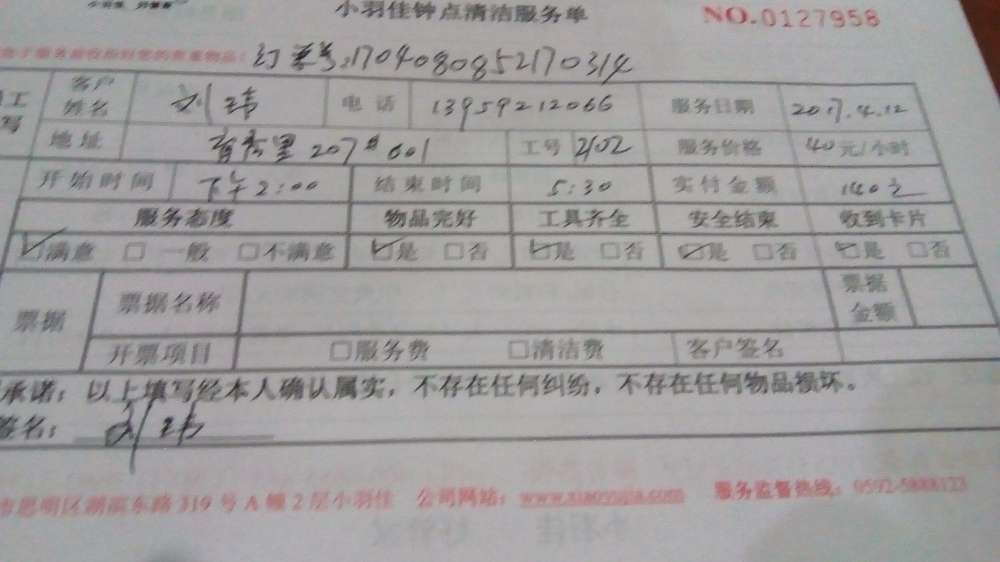 小羽佳钟点清洁服务单 NO.0127958
订单号:1704080852170314
客户姓名 刘玮 电话 13959212066 服务日期 2017.4.12
地址 育秀里207#601 工号 2102 服务价格 40元/小时
开始时间 下午2:00 结束时间 5:30 实付金额 140元
服务态度 物品完好 工具齐全 安全结束 收到卡片
☑满意 □一般 □不满意 ☑是 □否 ☑是 □否 ☑是 □否 ☑是 □否
票据 票据名称 票据金额
开票项目 □服务费 □清洁费 客户签名
承诺:以上填写经本人确认属实,不存在任何纠纷,不存在任何物品损坏。
签名: 刘玮
市思明区湖滨东路319号A幢2层小羽佳 公司网站:www.xiaoyujia.com 服务监督热线:0592-5888123